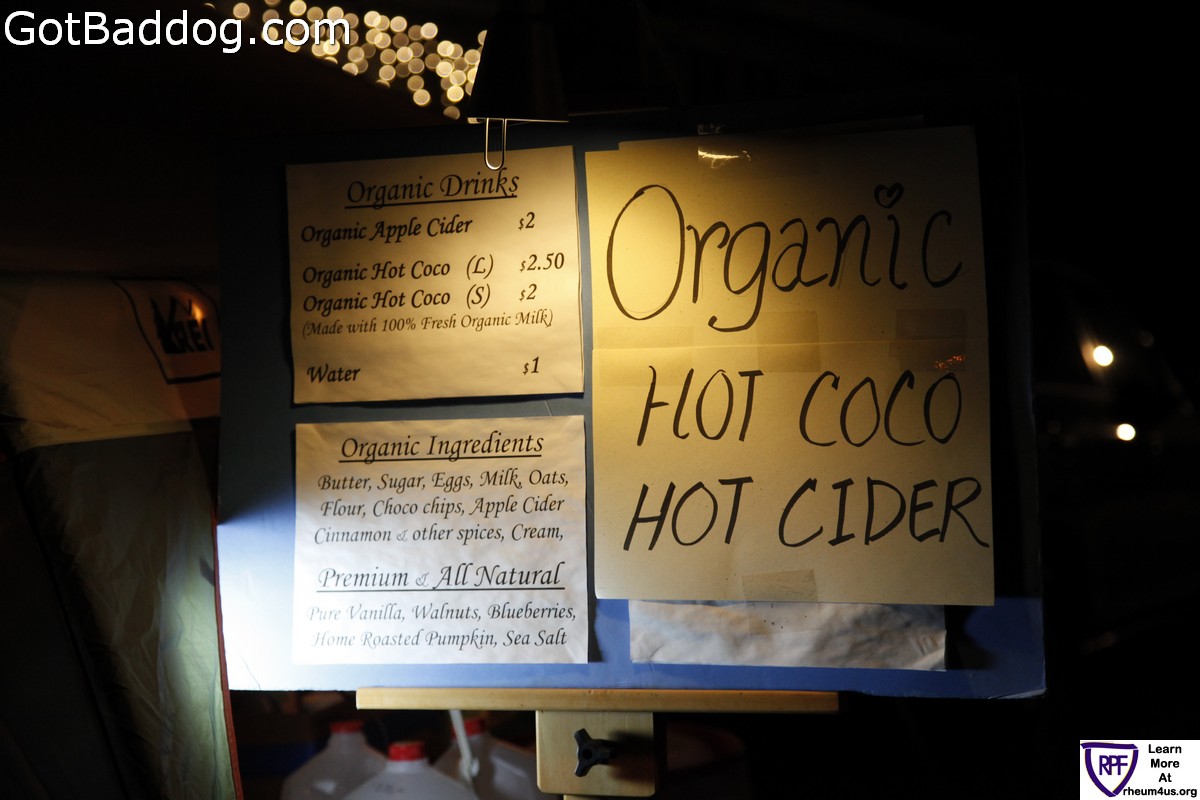 GotBaddog.com
Organic Drinks
Organic Apple Cider $2
Organic Hot Coco (L) $2.50
Organic Hot Coco (S) $2
(Made with 100% Fresh Organic Milk)
Water $1
Organic Ingredients
Butter, Sugar, Eggs, Milk, Oats,
Flour, Choco chips, Apple Cider
Cinnamon & other spices, Cream,
Premium & All Natural
Pure Vanilla, Walnuts, Blueberries,
Home Roasted Pumpkin, Sea Salt
Organic
HOT COCO
HOT CIDER
REI
RPF
Learn
More
At
rheum4us.org